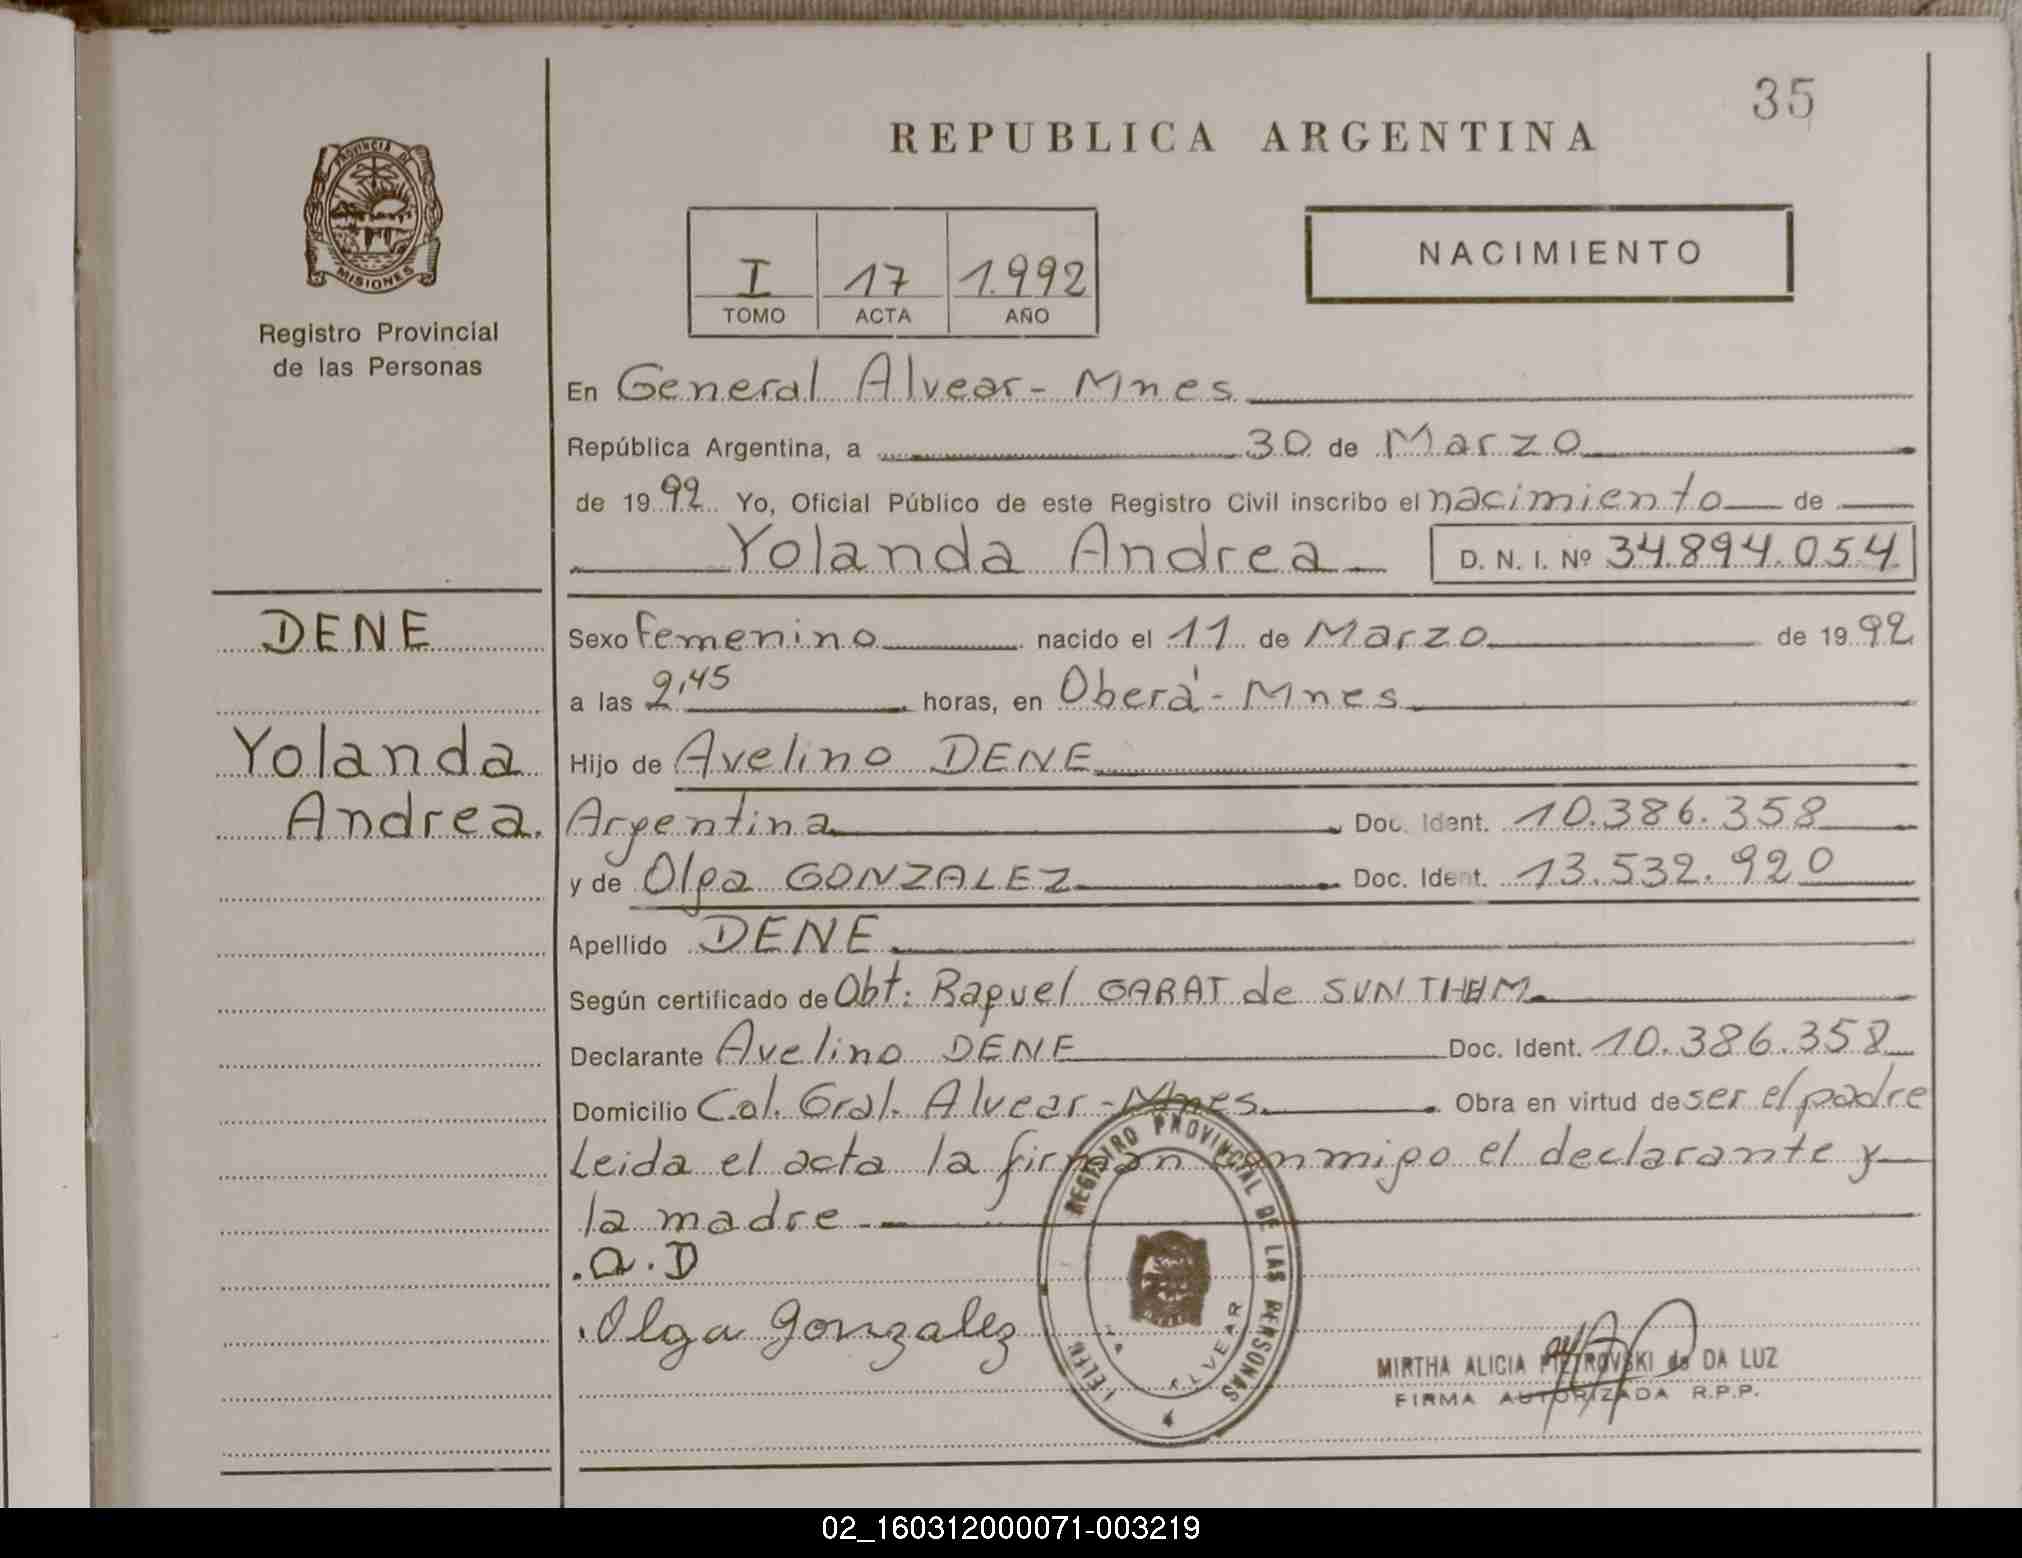 35
REPUBLICA ARGENTINA
PROVINCIA DE
MISIONES
Registro Provincial
de las Personas
NACIMIENTO
I 17 1.992
TOMO ACTA AÑO
En General Alvear - Mnes
República Argentina, a 30 de Marzo
de 1992 Yo, Oficial Público de este Registro Civil inscribo el nacimiento de
Yolanda Andrea D. N. I. Nº 34.894.054
DENE
Yolanda
Andrea.
Sexo Femenino nacido el 11 de Marzo de 1992
a las 2,45 horas, en Oberá - Mnes
Hijo de Avelino DENE
Argentina Doc. Ident. 10.386.358
y de Olga GONZALEZ Doc. Ident. 13.532.920
Apellido DENE
Según certificado de Obt: Raquel GARAT de
Declarante Avelino DENE Doc. Ident. 10.386.358
Domicilio Col. Gral. Alvear - Mnes Obra en virtud de ser el padre
Leida el acta la firman conmigo el declarante y
la madre
.a.D
.Olga gonzalez
REGISTRO PROVINCIAL DE LAS PERSONAS
ALVEAR
MIRTHA ALICIA PIETROVSKI de DA LUZ
FIRMA AUTORIZADA R.P.P.
02_160312000071-003219